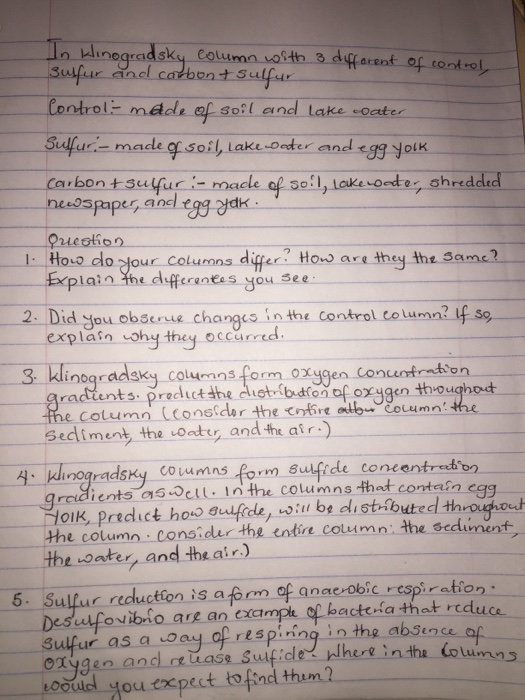 In Winogradsky column with 3 different of control,
sulfur and carbon + sulfur
Control:- made of soil and lake water
Sulfur:- made of soil, lake water and egg yolk
Carbon + sulfur :- made of soil, lake water, shredded
newspaper, and egg yolk.
Question
1. How do your columns differ? How are they the same?
Explain the differences you see.
2. Did you observe changes in the control column? If so,
explain why they occurred.
3. Winogradsky columns form oxygen concentration
gradients. predict the distribution of oxygen throughout
the column (consider the entire column: the
sediment, the water, and the air.)
4. Winogradsky columns form sulfide concentration
gradients as well. In the columns that contain egg
yolk, predict how sulfide, will be distributed throughout
the column. consider the entire column: the sediment,
the water, and the air.)
5. Sulfur reduction is a form of anaerobic respiration.
Desulfovibrio are an example of bacteria that reduce
sulfur as a way of respiring in the absence of
oxygen and release sulfide. Where in the columns
would you expect to find them?